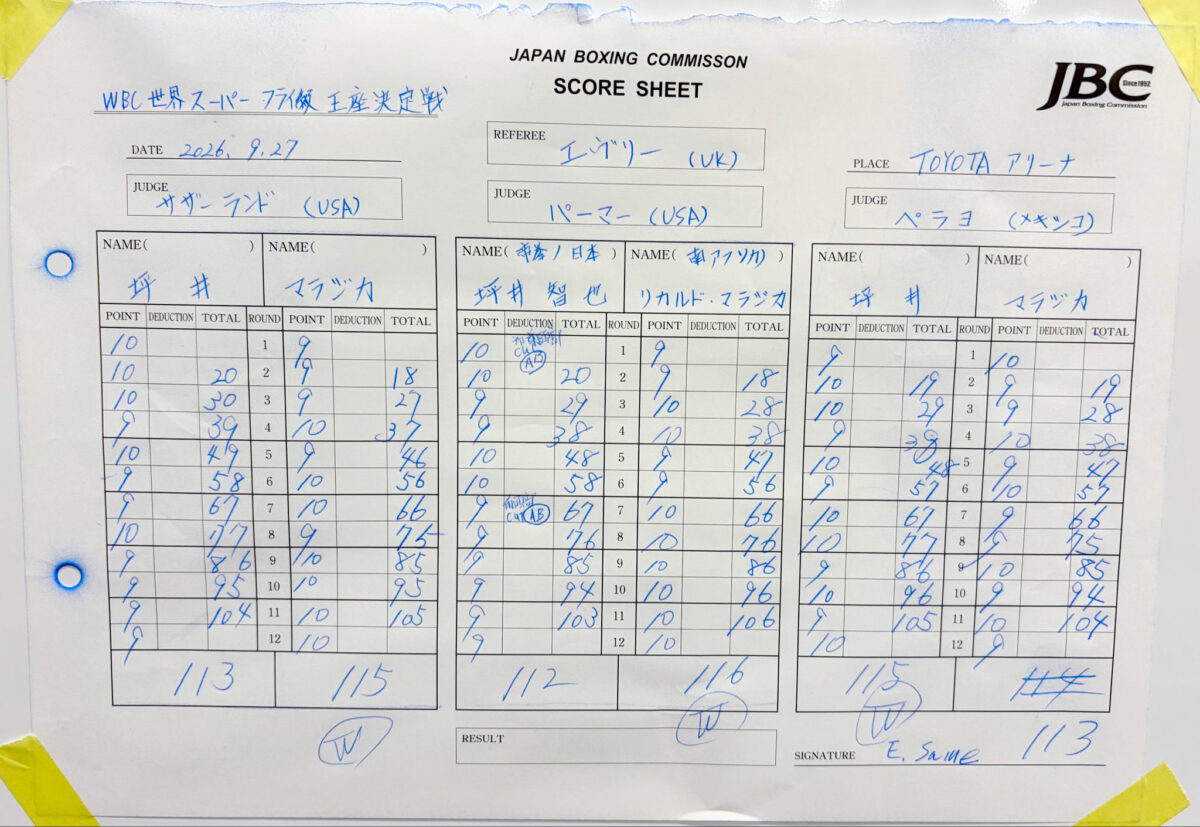 JAPAN BOXING COMMISSON
SCORE SHEET
JBC Since1952
Japan Boxing Commission
WBC 世界スーパーフライ級 王座決定戦
DATE 2026. 9.27
REFEREE エヴリー (UK)
PLACE TOYOTA アリーナ
JUDGE サザーランド (USA)
JUDGE パーマー (USA)
JUDGE ペラヨ (メキシコ)
NAME( ) NAME( )
坪井 マラジカ
POINT DEDUCTION TOTAL ROUND POINT DEDUCTION TOTAL
10 1 9
10 20 2 9 18
10 30 3 9 27
9 39 4 10 37
10 49 5 9 46
9 58 6 10 56
9 67 7 10 66
10 77 8 9 75
9 86 9 10 85
9 95 10 10 95
9 104 11 10 105
9 12 10
113 115
W
NAME( / 日本 ) NAME( 南アフリカ )
坪井 智也 リカルド・マラジカ
POINT DEDUCTION TOTAL ROUND POINT DEDUCTION TOTAL
10 Cut AB 1 9
10 20 2 9 18
9 29 3 10 28
9 38 4 10 38
10 48 5 9 47
10 58 6 9 56
9 Cut AB 67 7 10 66
9 76 8 10 76
9 85 9 10 86
9 94 10 10 96
9 103 11 10 106
9 12 10
112 116
W
RESULT
NAME( ) NAME( )
坪井 マラジカ
POINT DEDUCTION TOTAL ROUND POINT DEDUCTION TOTAL
9 1 10
10 19 2 9 19
10 29 3 9 28
9 38 4 10 38
10 48 5 9 47
9 57 6 10 57
10 67 7 9 66
10 77 8 9 75
9 86 9 10 85
10 96 10 9 94
9 105 11 10 104
10 12 9
115 114
W 113
SIGNATURE E. Saine